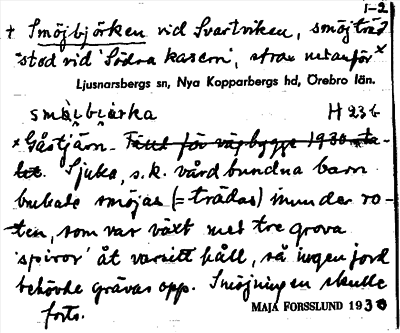 1-2
+ Smöjbjörken vid Svartviken, smöjträd
stod vid 'Södra kasern', strax nedanför x
Ljusnarsbergs sn, Nya Kopparbergs hd, Örebro län.
smöjbjörka H 23 b
x Gåstjärn. Fälld för vägbygge 1930-ta-
let. Sjuka, s.k. vårdbundna barn
brukade smöjas (= trädas) inunder ro-
ten, som var växt med tre grova
'spiror' åt varsitt håll, så ingen jord
behövde grävas opp. Smöjningen skulle
forts.
MAJA FORSSLUND 1930